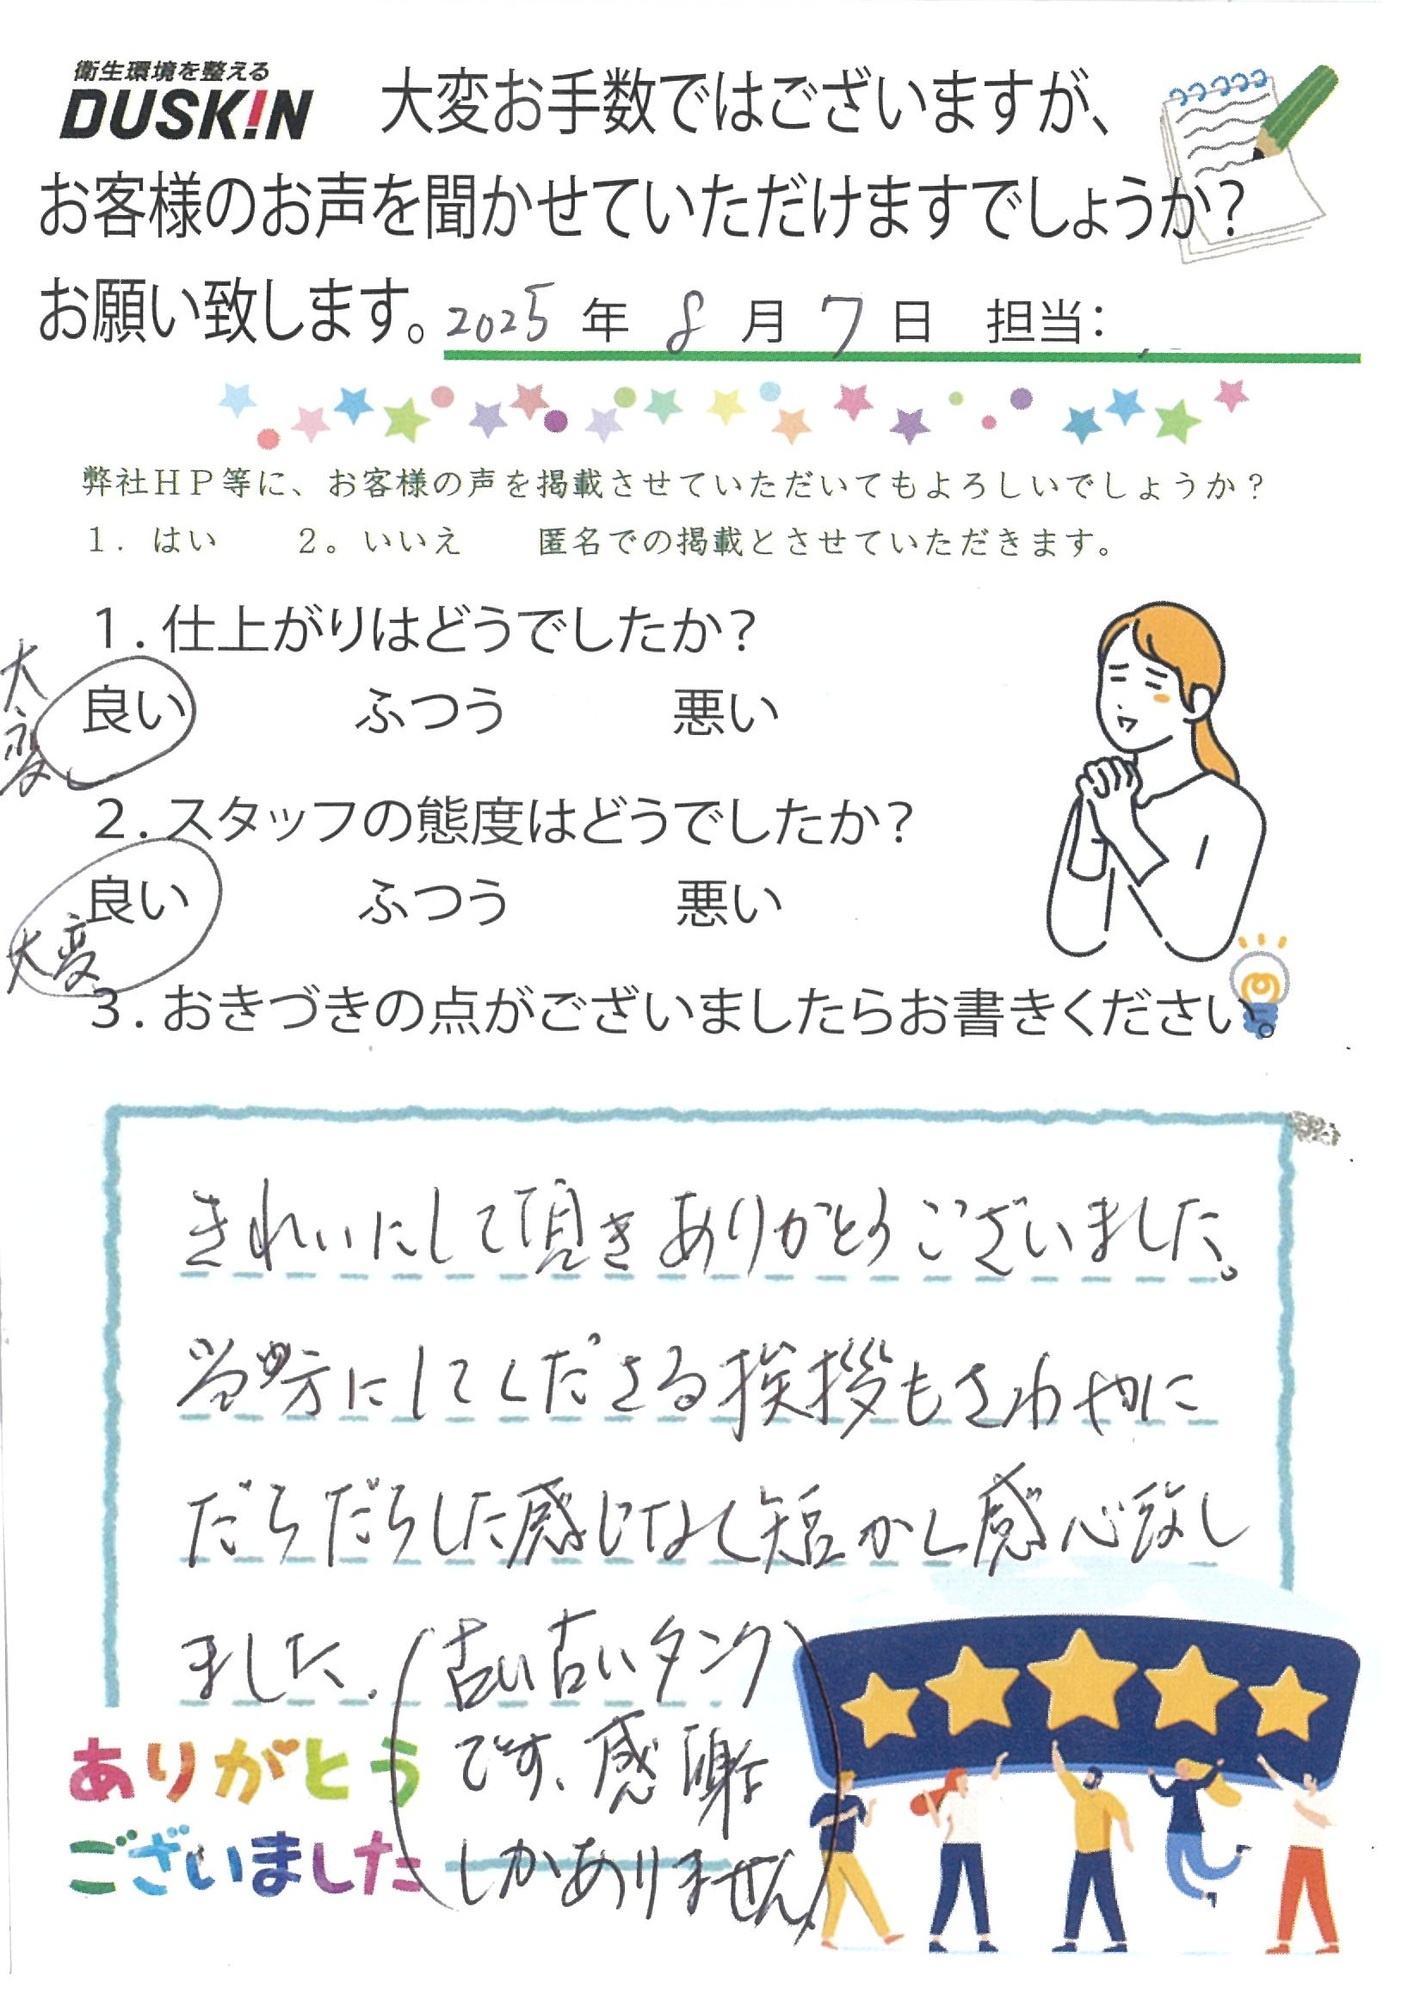 衛生環境を整える
DUSKIN
大変お手数ではございますが、
お客様のお声を聞かせていただけますでしょうか？
お願い致します。2025年 8月 7日 担当：
弊社HP等に、お客様の声を掲載させていただいてもよろしいでしょうか？
1．はい 2。いいえ 匿名での掲載とさせていただきます。
1．仕上がりはどうでしたか？
大変 良い ふつう 悪い
2．スタッフの態度はどうでしたか？
大変 良い ふつう 悪い
3．おきづきの点がございましたらお書きください。
きれいにして頂きありがとうございました。
方にしてくださる挨拶もさわやかに
だらだらした感じなく短かく感心致し
ました．（古い古いタンク
です、感謝
しかありません）
ありがとう
ございました